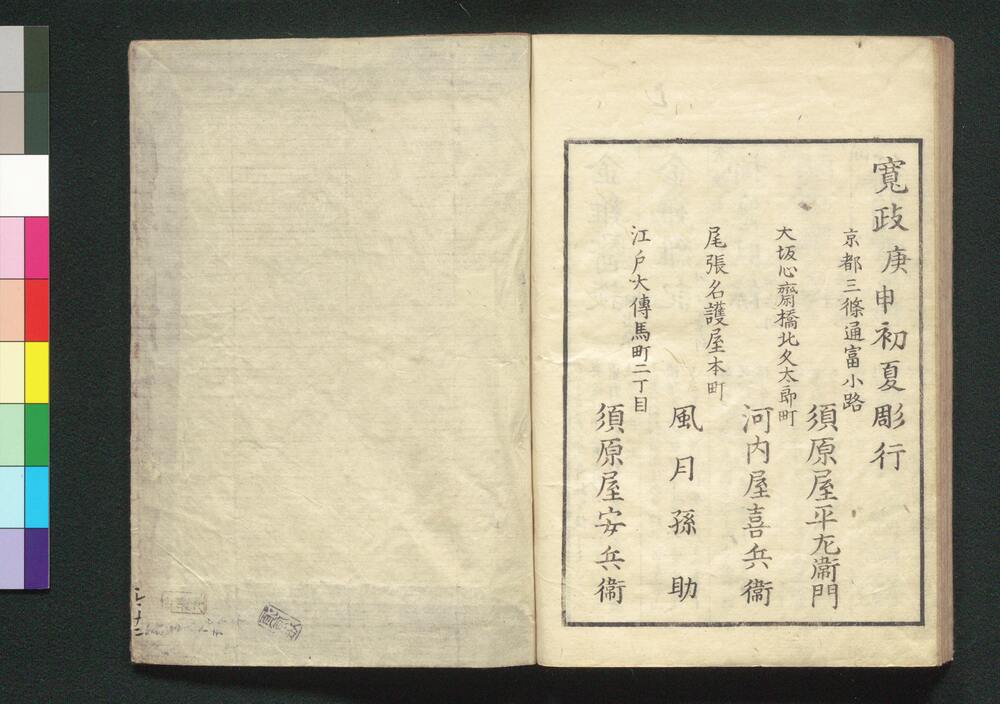 寛政庚申初夏彫行
京都三條通富小路
須原屋平左衛門
大坂心齋橋北久太郎町
河内屋喜兵衛
尾張名護屋本町
風月孫助
江戸大傳馬町二丁目
須原屋安兵衛